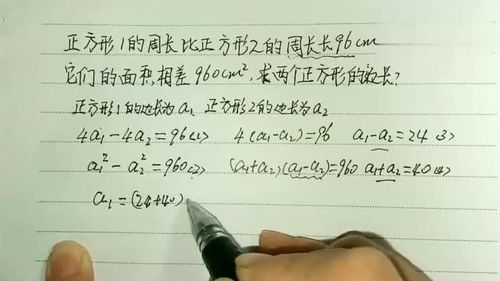 正方形1的周长比正方形2的周长长96cm
它们的面积相差960cm²,求两个正方形的边长?
正方形1的边长为a₁ 正方形2的边长为a₂
4a₁-4a₂=96(1) 4(a₁-a₂)=96 a₁-a₂=24(3)
a₁²-a₂²=960(2) (a₁+a₂)(a₁-a₂)=960 a₁+a₂=40(4)
a₁=(24+40)